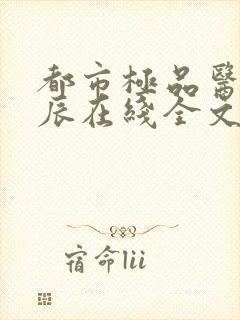 都市極品醫
辰在綫全文
宿命lii